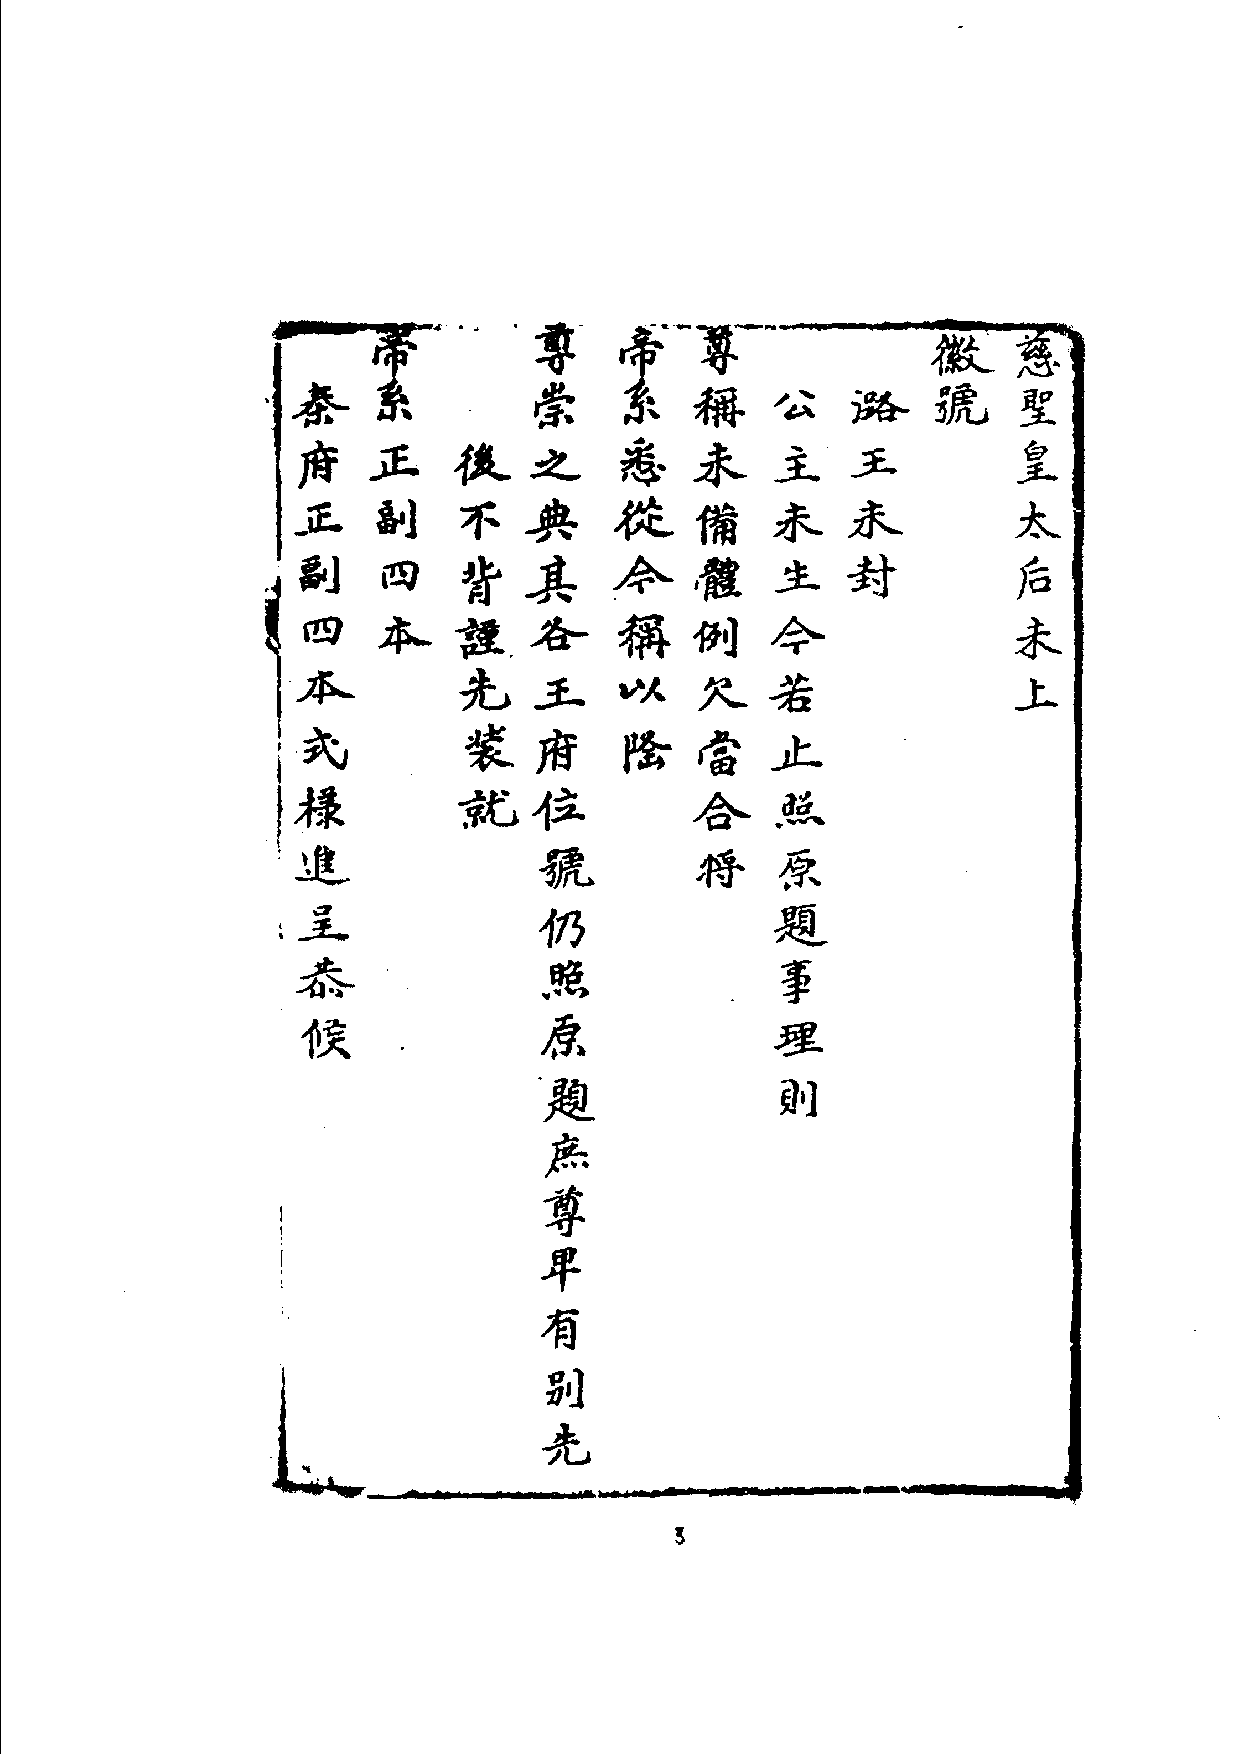 慈聖皇太后未上
徽號
潞王未封
公主未生今若止照原題事理則
尊稱未備體例欠當合將
帝系悉從今稱以隆
尊崇之典其各王府位號仍照原題庶尊卑有別先
後不背謹先装就
帝系正副四本
秦府正副四本式樣進呈恭候
3